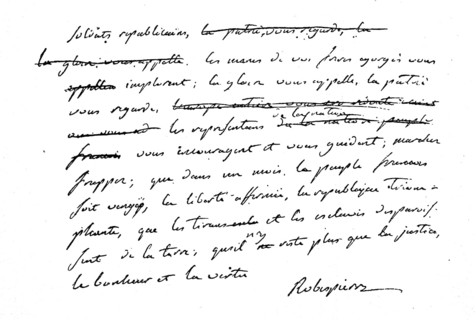 Soldats republicains, la patrie vous regarde, la
la gloire vous appelle. les manes de vos freres egorgés vous
appellent implorent; la gloire vous appelle, la patrie
vous regarde, les representans de la nation
francais vous encouragent et vous guident; marchez
frappez; que dans un mois le peuple francais
soit vengé, la liberté affermie, la republique triom-
phante, que les tirans et les esclaves disparois-
sent de la terre; qu'il n'y reste plus que la justice,
le bonheur et la vertu
Robespierre